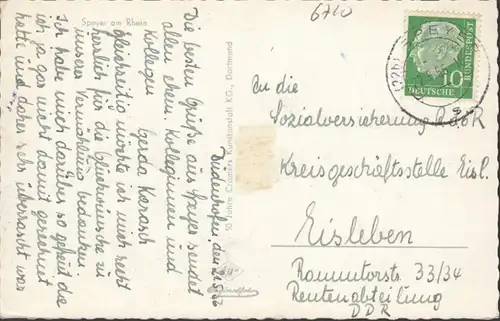 Speyer am Rhein
6720
Die besten Grüße aus Speyer sendet
allen ehem. Kolleginnen und
Kollegen
Gerda
Gleichzeitig möchte ich mich recht
herzlich für die Glückwünsche zu
unserer Vermählung bedanken.
Ich habe mich darüber so gefreut, da
ich ja gar nicht damit gerechnet
hatte und daher sehr überrascht war
Dudenhofen, den
50 Jahre Cramers Kunstanstalt KG., Dortmund
DEUTSCHE
BUNDESPOST
10
An die
Sozialversicherung
Kreisgeschäftsstelle Eisl.
Eisleben
33/34
Rentenabteilung
DDR